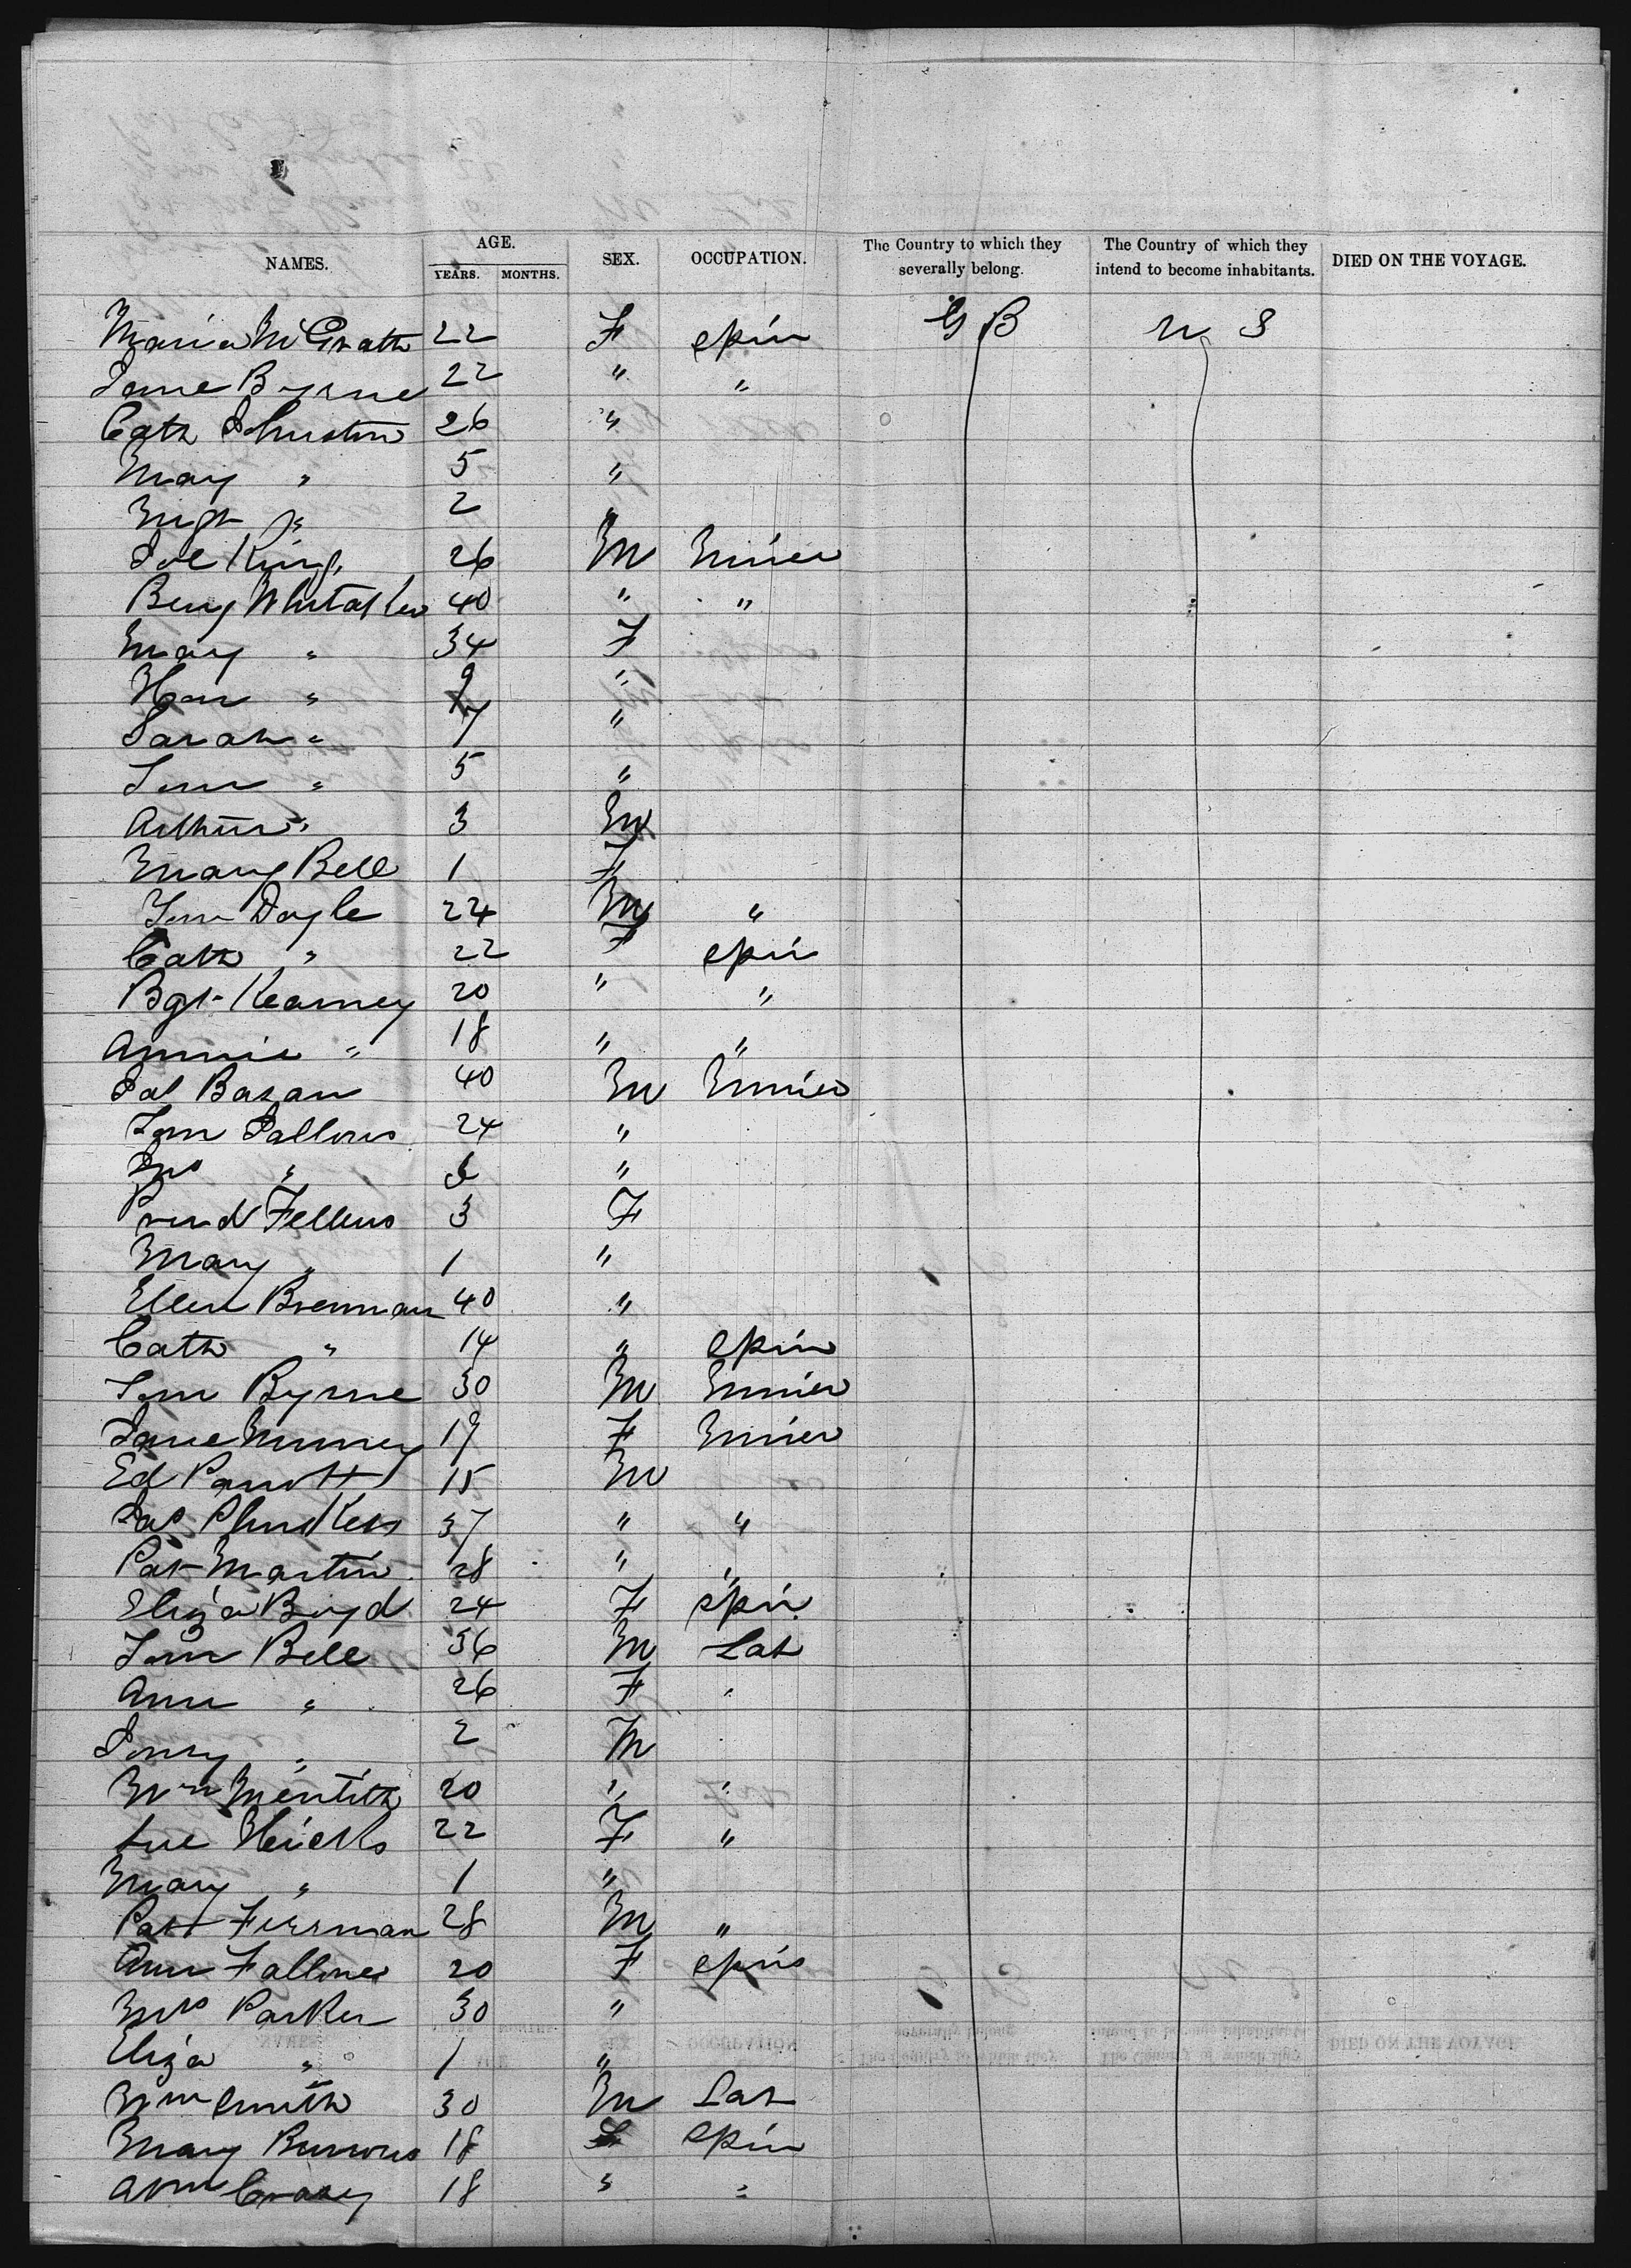 NAMES. AGE. YEARS. MONTHS. SEX. OCCUPATION. The Country to which they severally belong. The Country of which they intend to become inhabitants. DIED ON THE VOYAGE.
Maria McGrath 22 F spin G B U S
Jane Byrne 22 " "
Cath Johnston 26 "
Mary " 5 "
Mgt " 2 "
Joe King 26 M Miner
Benj Whitaker 40 " "
Mary " 34 F
Han " 9 "
Sarah " 7 "
" 5 "
Arthur " 3 M
Mary Bell 1 F
Tom Doyle 24 M "
Cath " 22 F spin
Bgt Kearney 20 " "
Annie " 18 " "
Bazan 40 M Miner
Tom 24 "
" "
Fellews 3 F
Mary " 1 "
Ellen Brennan 40 "
Cath " 14 " spin
Tom Byrne 30 M Miner
Jane 19 F Miner
Ed Parrott 15 M
Jas Plunkett 37 " "
Pat Martin 28 " "
Eliza Boyd 24 F spin
Tom Bell 36 M Lab
Ann " 26 F "
" 2 M
Wm Merideth 20 " "
Sue Hicks 22 F "
Mary " 1 "
Patt 28 M "
Ann Fallone 20 F spin
Mrs Parker 30 "
Eliza " 1 "
Wm Smith 30 M Lab
Mary Burrows 18 spin
Ann 18 " "